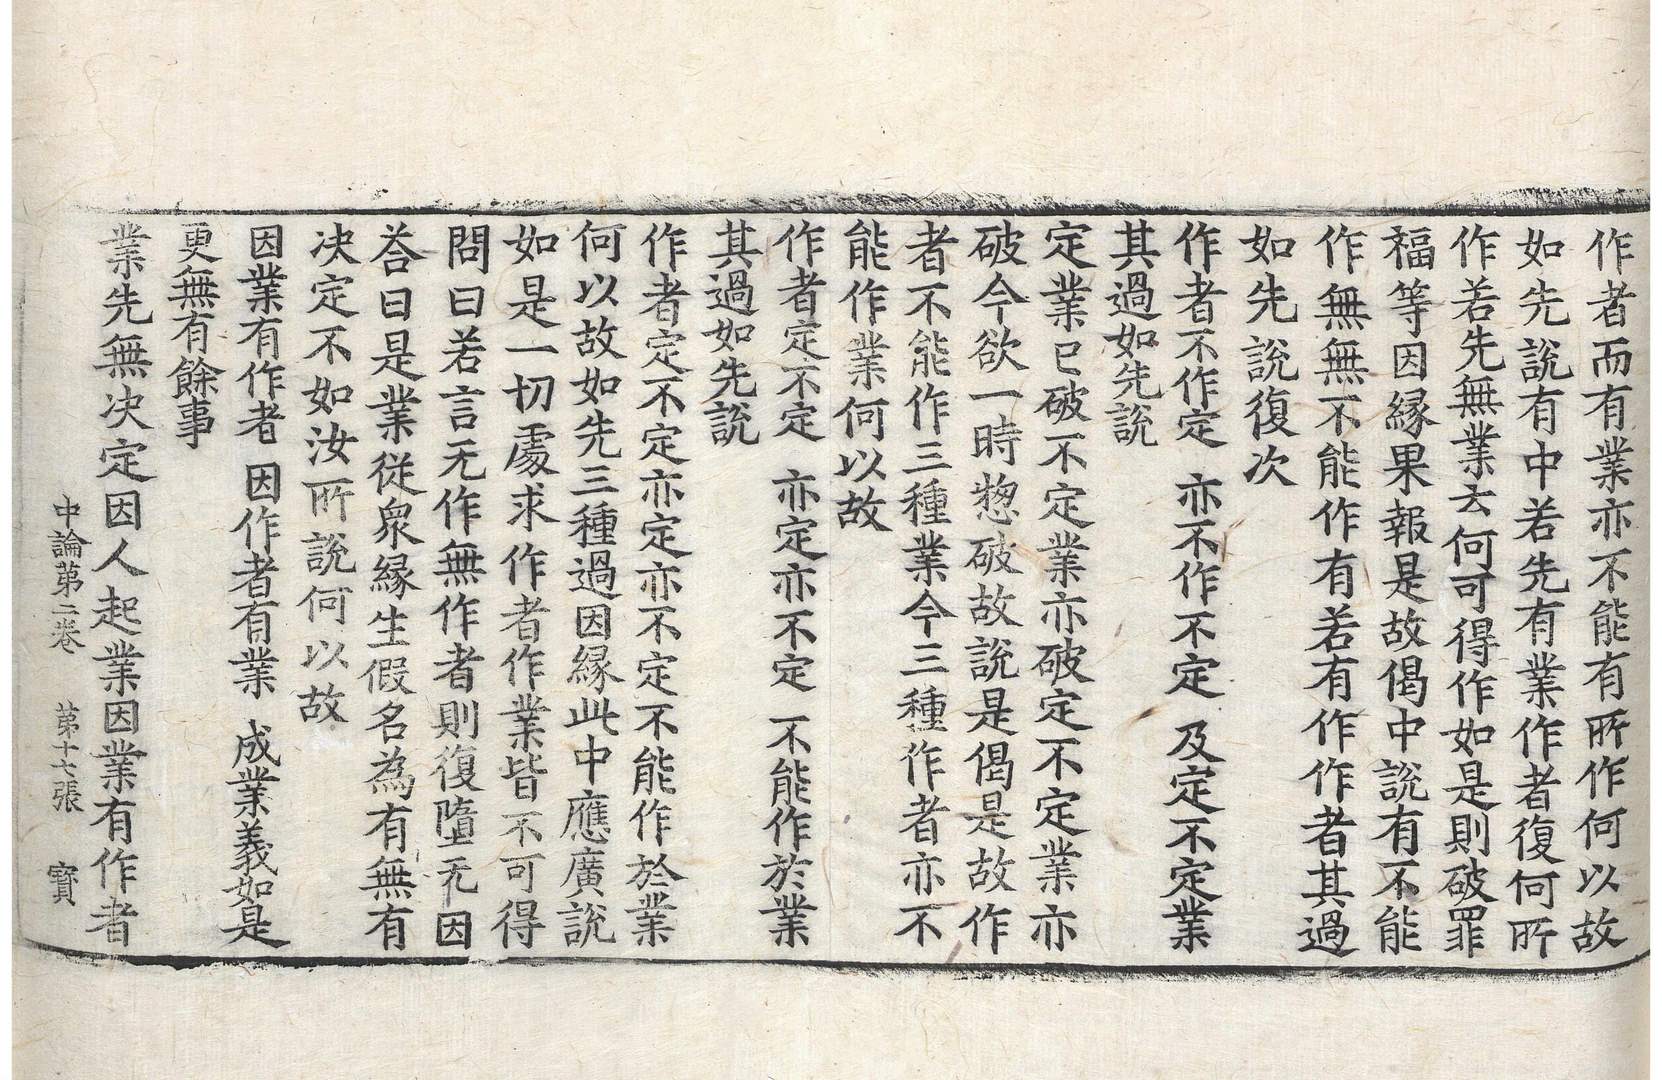 作者而有業亦不能有所作何以故
如先說有中若先有業作者復何所
作若先無業去何可得作如是則破罪
福等因縁果報是故偈中說有不能
作無無不能作有若有作作者其過
如先說復次
作者不作定 亦不作不定 及定不定業
其過如先說
定業已破不定業亦破定不定業亦
破今欲一時惣破故說是偈是故作
者不能作三種業今三種作者亦不
能作業何以故
作者定不定 亦定亦不定 不能作於業
其過如先說
作者定不定亦定亦不定不能作於業
何以故如先三種過因縁此中應廣說
如是一切處求作者作業皆不可得
問曰若言无作無作者則復墮无因
荅曰是業從衆縁生假名為有無有
决定不如汝所說何以故
因業有作者 因作者有業 成業義如是
更無有餘事
業先無决定因人起業因業有作者
中論第二卷 第十七張 寳